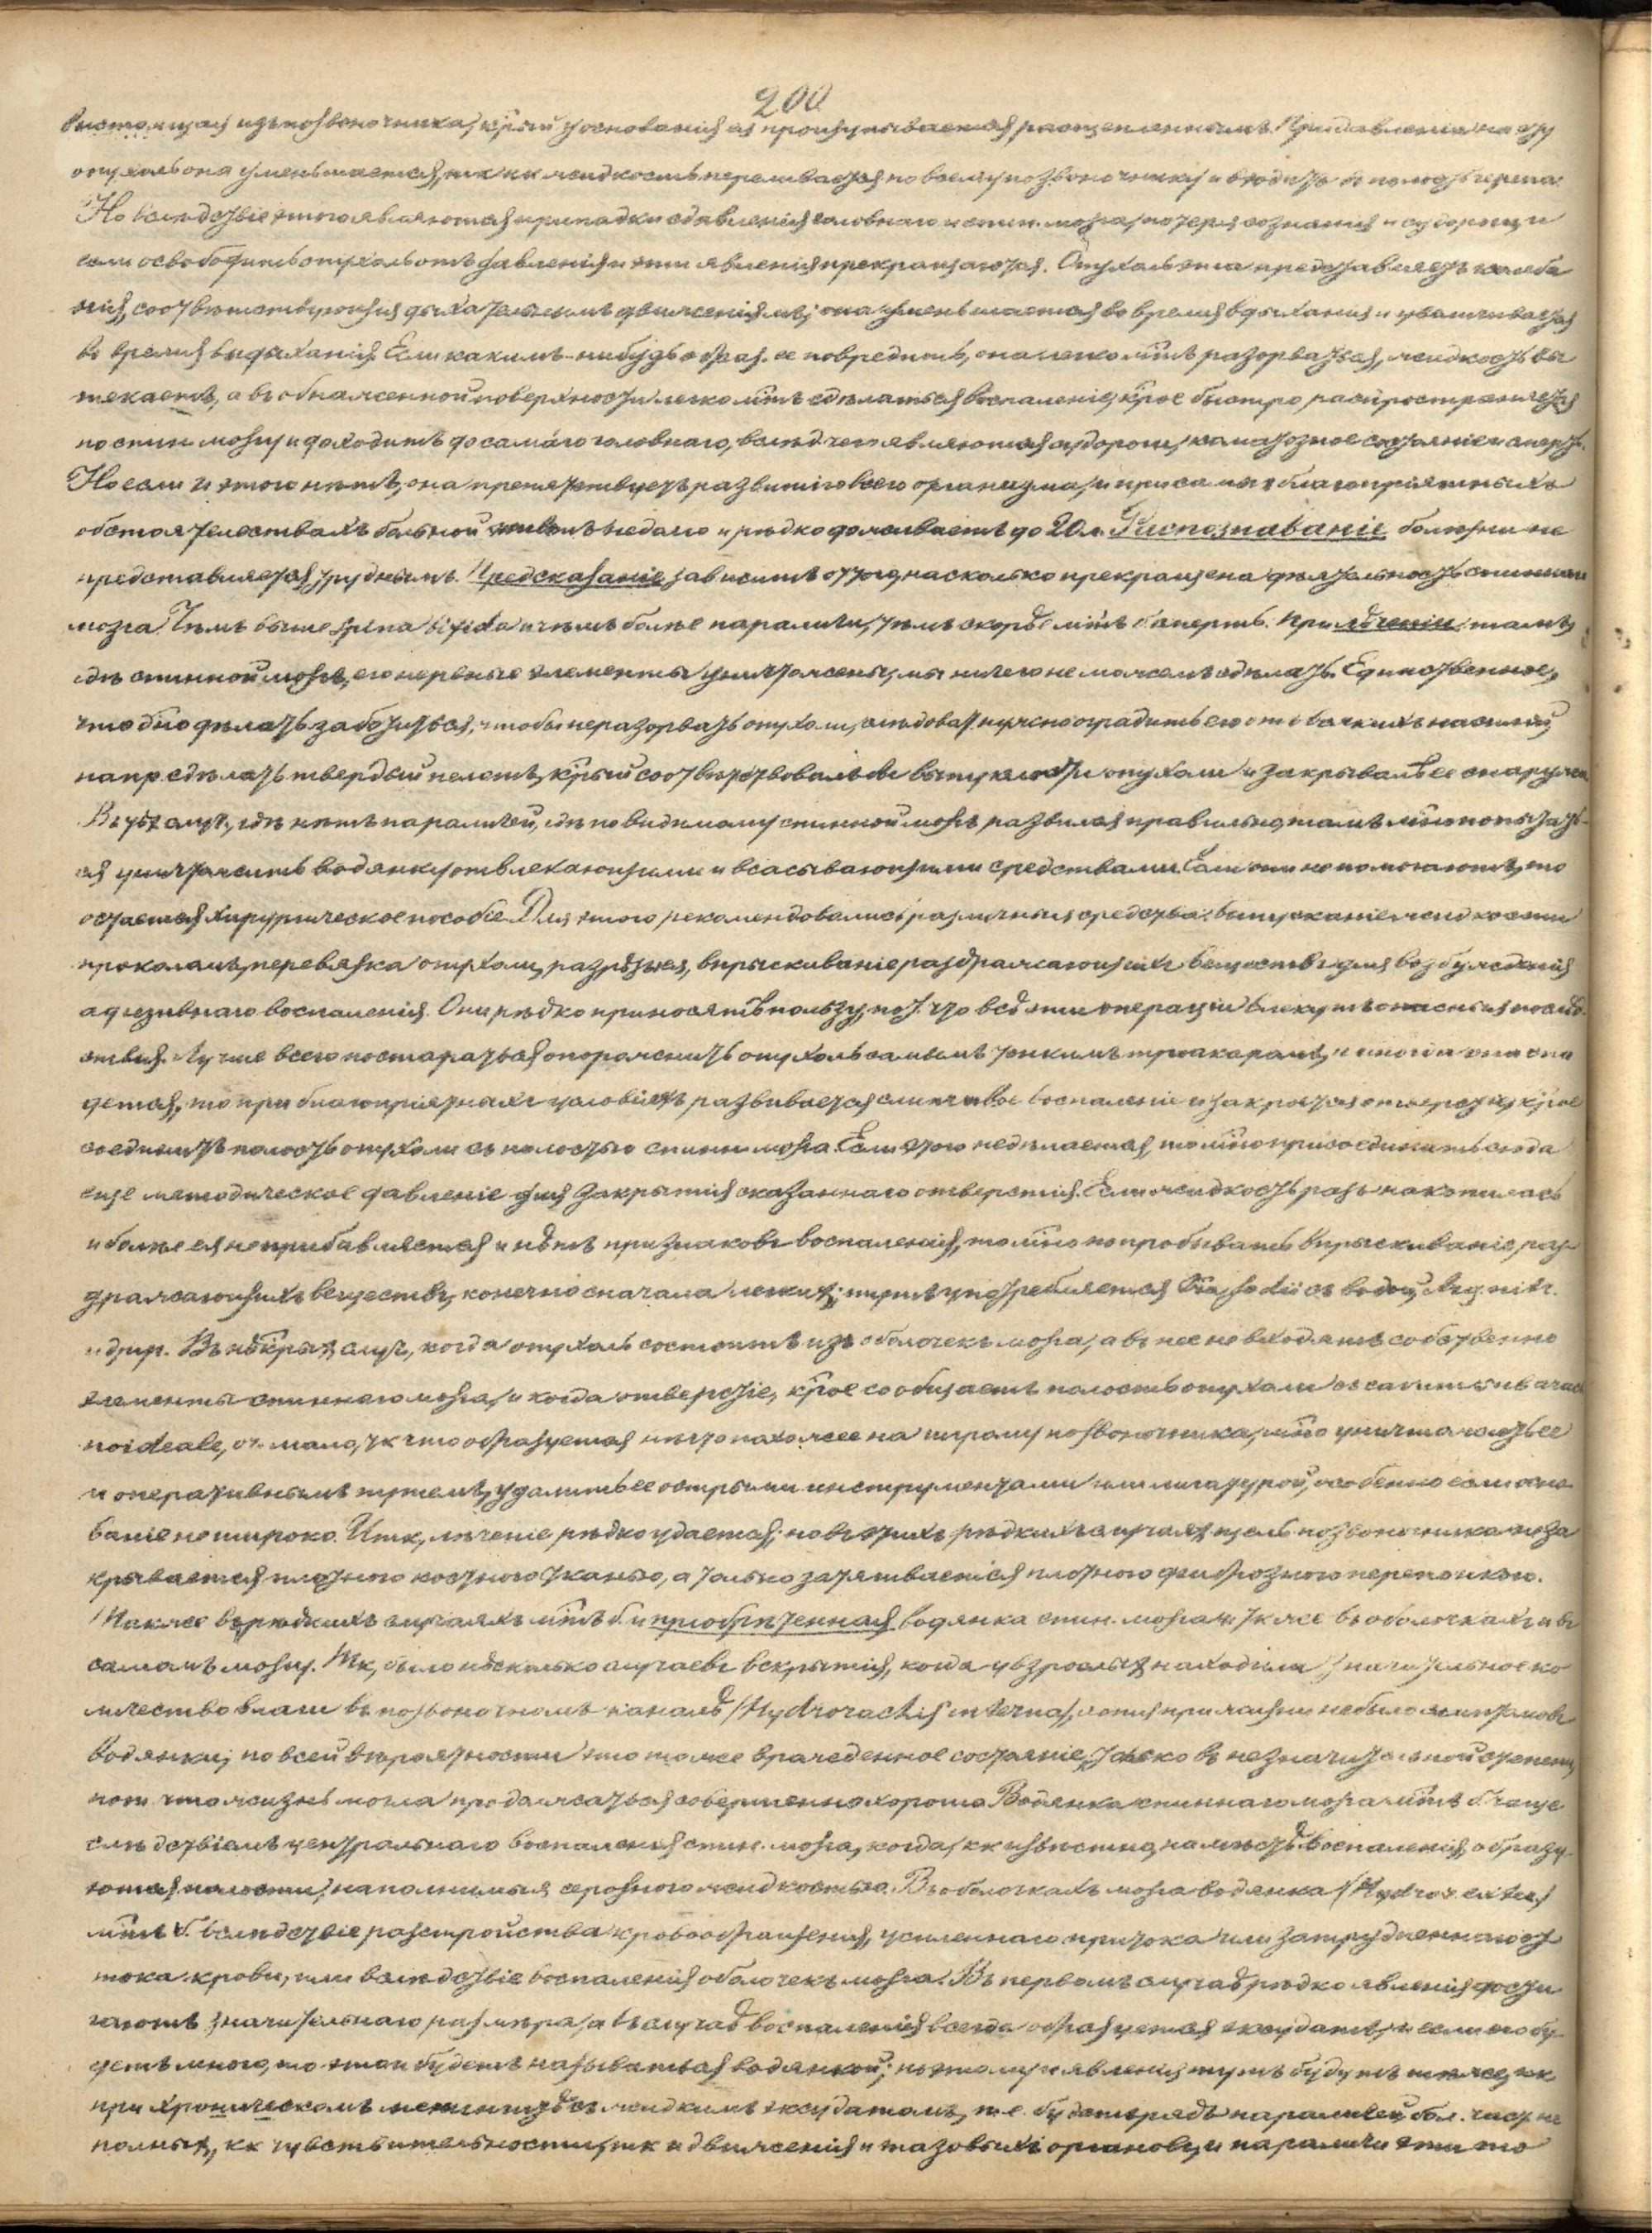 200
выстоящая изъ позвоночника, к̃рый у основанія ея прощупывается расщепленнымъ. При давленіи на эту
опухоль она уменьшается, тк кк жидкость переливается по всему позвоночнику и входитъ въ полость черепа.
Но вслѣдствіе этого являются припадки сдавленія головнаго и спин. мозга, потеря сознанія и судороги, и
если освободить опухоль отъ давленія, эти явленія прекращаются. Опухоль эта представляетъ колеба
нія, соотвѣтствующія дыхательнымъ движеніямъ; она уменьшается во время вдыханія и увеличивается
во время выдыханія. Если какимъ-нибудь образ. ее повредить, она легко м̃тъ разорваться, жидкость вы
текаетъ, а въ обнаженной поверхности легко м̃тъ сдѣлаться воспаленіе, к̃рое быстро распространяется
по спин. мозгу и доходитъ до самаго головнаго, вслѣд. чего являются судороги, коматозное состояніе и смерть.
Но если и этого нѣтъ, она препятствуетъ развитію всего организма, и при самыхъ благопріятныхъ
обстоятельствахъ больной живетъ недолго и рѣдко доживаетъ до 20 л. Распознаваніе болѣзни не
представляется труднымъ. Предсказаніе зависитъ отъ того, насколько прекращена дѣятельность спиннаго
мозга. Чѣмъ выше spina bifida и чѣмъ болѣе параличи, тѣмъ скорѣе м̃тъ б. смерть. При лѣченіи: тамъ,
гдѣ спинной мозгъ, его нервные элементы уничтожены, мы ничего не можемъ сдѣлать. Единственное,
что д̃но дѣлать заботиться, чтобы не разорвать опухоли, слѣдоват. нужно оградить ее отъ всякихъ насилій,
напр. сдѣлать твердый пелотъ, к̃рый соотвѣтствовалъ бы выпуклости опухоли и закрывалъ ее снаружи.
Въ тѣхъ случ., гдѣ нѣтъ параличей, гдѣ повидимому спинной мозгъ развился правильно, тамъ м̃но попытать-
ся уничтожить водянку отвлекающими и всасывающими средствами. Если они не помогаютъ, то
остается хирургическое пособіе. Для этого рекомендовались различныя средства: выпусканіе жидкости
проколомъ, перевязка опухоли, разрѣзыв., впрыскиваніе раздражающихъ веществъ для возбужденія
адгезивнаго воспаленія. Они рѣдко приносятъ пользу, пот. что всѣ эти операціи влекутъ опасныя послѣд.
ствія. Лучше всего постараться опорожнить опухоль самымъ тонкимъ троакаромъ, и иногда она спа
дется, то при благопріятныхъ условіяхъ развивается слипчивое воспаленіе и закроется отверстіе, к̃рое
соединяетъ полость опухоли съ полостью спинн. мозга. Если этого не дѣлается, то м̃но присоединить сюда
еще методическое давленіе для закрытія сказаннаго отверстія. Если жидкость разъ накопилась
и болѣе ея не прибавляется и нѣтъ признаковъ воспаленія, то м̃но попробывать впрыскиваніе, раз-
дражающихъ веществъ, конечно сначала легкихъ; тутъ употребляется съ водой, Arg. nitr.
и друг. Въ нѣк̃рыхъ случ., когда опухоль состоитъ изъ оболочекъ мозга, а въ нее не входятъ собственно
элементы спиннаго мозга, и когда отверстіе, к̃рое сообщаетъ полость опухоли съ cavum arach
noideale, оч. мало, тк что образуется нѣчто похожее на на позвоночника, м̃но уничтожать ее
и оперативнымъ путемъ, удалить ее острыми инструментами или лигатурой, особенно если осно-
ваніе не широко. Итк, лѣченіе рѣдко удается; но въ этихъ рѣдкихъ случаяхъ щель позвоночника не за
крывается плотною костною тканью, а только затягивается плотною фиброзною перепонкою.
Также въ рѣдкихъ случаяхъ м̃тъ б. и пріобрѣтенная водянка спин. мозга, тк же въ оболочкахъ и въ
самомъ мозгу. Тк, было нѣсколько случаевъ вскрытія, когда у взрослыхъ находили значительное ко
личество влаги въ позвоночномъ каналѣ /Hydrorachis interna/, хотя при жизни не было симптомовъ
водянки; по всей вѣроятности это тоже врожденное состояніе, только въ незначительной степени,
пот. что жизнь могла продолжаться совершенно хорошо. Водянка спиннаго мозга м̃тъ б. чаще
слѣдствіемъ центральнаго воспаленія спин. мозга, когда, кк извѣстно, на мѣстѣ воспаленія образу-
ются полости, наполнимыя серозною жидкостью. Въ оболочкахъ мозга водянка /Hydror. exter./
м̃тъ б. вслѣдствіе разстройства кровообращенія, усиленнаго притока или затрудненнаго от
тока крови, или вслѣдствіе воспаленія оболочекъ мозга. Въ первомъ случаѣ рѣдко явленія дости
гаютъ значительнаго размѣра, а въ случаѣ воспаленія всегда образуется эксудатъ, и если его бу-
детъ много, то это и будетъ называться водянкой; поэтому и явленія тутъ будутъ тѣ же, кк
при хроническомъ менингитѣ съ жидкимъ эксудатомъ, т.е. будетъ рядъ параличей бол. част. не
полныхъ, кк чувствительности, тк и движенія и тазовыхъ органовъ, и параличи эти то